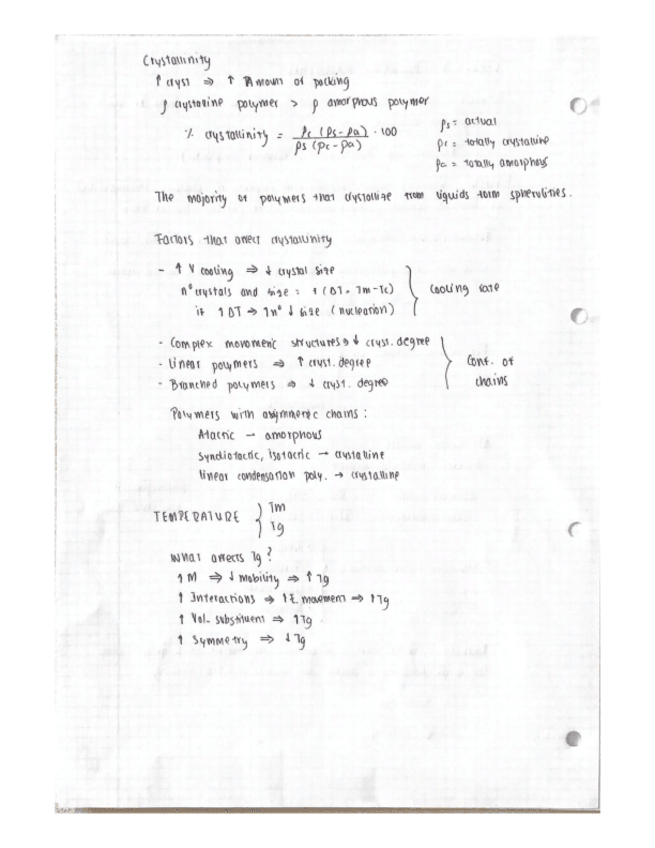 Crystallinity
↑ cryst ⇒ ↑ Amount of packing
ρ crystalline polymer > ρ amorphous polymer
% crystallinity = ρc (ρs - ρa) / ρs (ρc - ρa) · 100
ρs = actual
ρc = totally crystalline
ρa = totally amorphous
The majority of polymers that crystallize from liquids form spherulites.
Factors that affect crystallinity
- ↑ V cooling ⇒ ↓ crystal size
nº crystals and size = f (ΔT = Tm - Tc)
if ↑ ΔT → ↑ nº ↓ size (nucleation)
cooling rate
- Complex movement structures → ↓ cryst. degree
- Linear polymers ⇒ ↑ cryst. degree
- Branched polymers ⇒ ↓ cryst. degree
Conf. of
chains
Polymers with asymmetric chains :
Atactic → amorphous
Syndiotactic, isotactic → crystalline
linear condensation poly. → crystalline
TEMPERATURE } Tm
Tg
What affects Tg ?
↑ M ⇒ ↓ mobility ⇒ ↑ Tg
↑ Interactions ⇒ ↑ E. movement ⇒ ↑ Tg
↑ Vol. substituent ⇒ ↑ Tg
↑ Symmetry ⇒ ↓ Tg